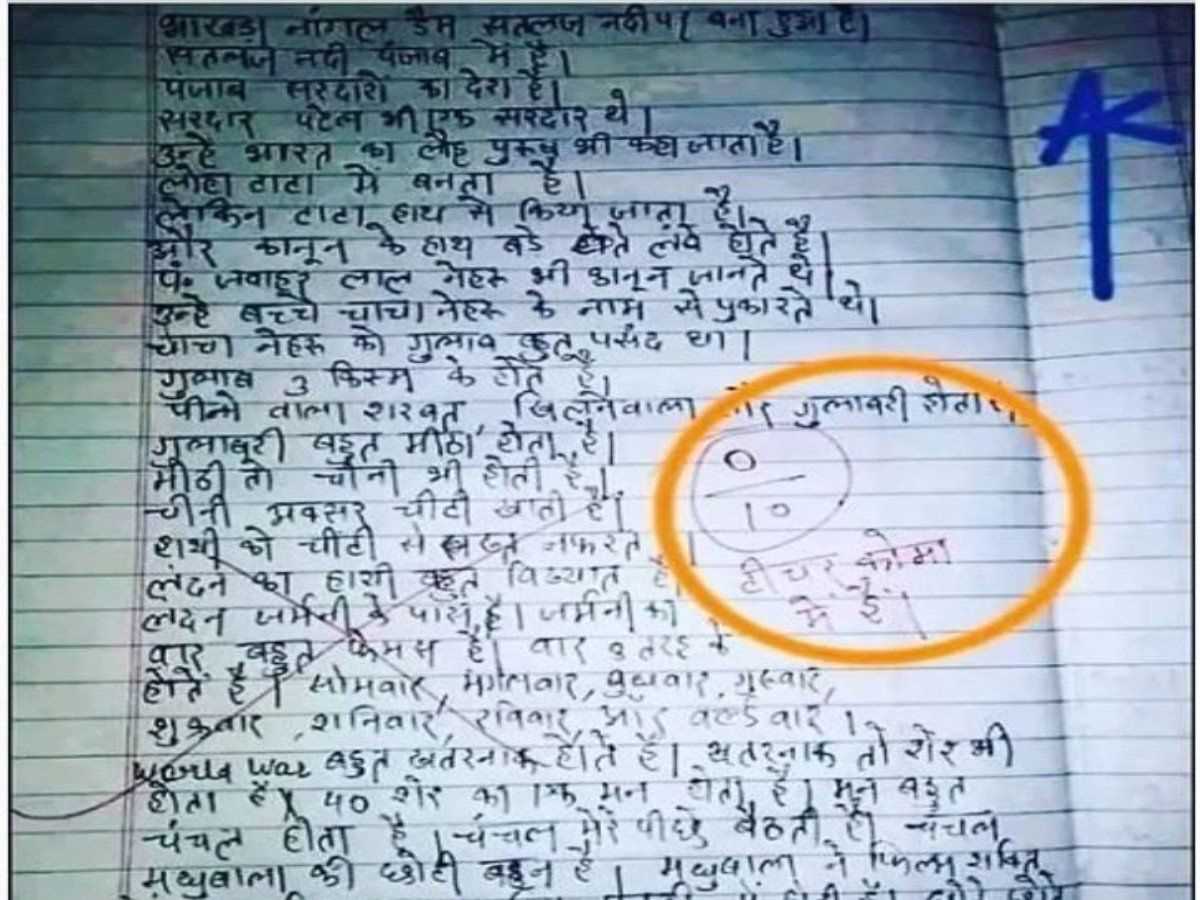 भाखड़ा नांगल डैम सतलज नदी पर बना हुआ है।
सतलज नदी पंजाब में है।
पंजाब सरदारों का देश है।
सरदार पटेल भी एक सरदार थे।
उन्हे भारत का लौह पुरुष भी कहा जाता है।
लोहा टाटा में बनता है।
लेकिन टाटा हाथ से किया जाता है।
और कानून के हाथ बडे लंबे होते है।
पं. जवाहर लाल नेहरू भी कानून जानते थे।
उन्हे बच्चे चाचा नेहरू के नाम से पुकारते थे।
चाचा नेहरू को गुलाब बहुत पसंद था।
गुलाब 3 किस्म के होते है।
पीने वाला शरबत, खिलनेवाला और गुलाबरी होता है,
गुलाबरी बहुत मीठा होता है।
मीठी तो चीनी भी होती है।
चीनी अक्सर चीटी खाती है।
हाथी को चीटी से सख्त नफरत है।
लंदन का हाथी बहुत विख्यात है।
लंदन जर्मनी के पास है। जर्मनी का
वार बहुत फेमस है। वार 8 तरह के
होते है। सोमवार, मंगलवार, बुधवार, गुरुवार,
शुक्रवार, शनिवार, रविवार, और वर्ल्डवार।
world war बहुत खतरनाक होते है। खतरनाक तो शेर भी
होता है। 40 शेर का एक मन होता है। मन बहुत
चंचल होता है। चंचल मेरे पीछे बैठती है। चंचल
मधुबाला की छोटी बहन है। मधुबाला ने फिल्म शक्ति
0
10
टीचर कोमा
में है।